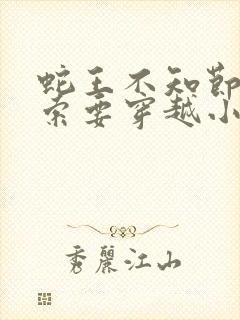 蛇王不知節
索要穿越小
秀麗江山